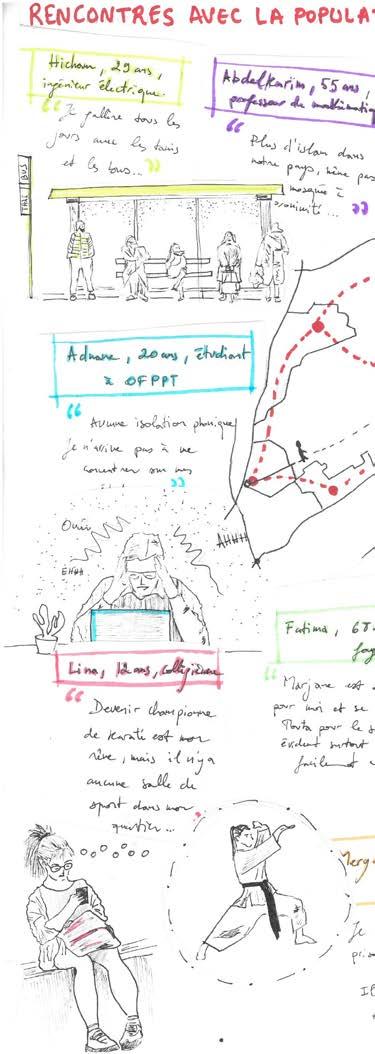 RENCONTRES AVEC LA POPULAT
Hicham, 29 ans,
ingénieur électrique.
Je galère tous les
jours avec les taxis
et les bus...
TAXI BUS
Abdelkarim, 55 ans,
professeur de mathématiq
Plus d'islam dans
notre pays, même pas
mosquée à
proximité...
Adnane, 20 ans, étudiant
à OFPPT
Aucune isolation phonique
je n'arrive pas à me
concentrer sur mes
Ouin
EHHH
AHHH
Lina, 12 ans, collégienne
Devenir championne
de karaté est mon
rêve, mais il n'y a
aucune salle de
sport dans mon
quartier...
Fatima, 68
foy
Marjane est
pour moi et se
pour le s
évident surtout
facilement
Merg
Je
pris
Il